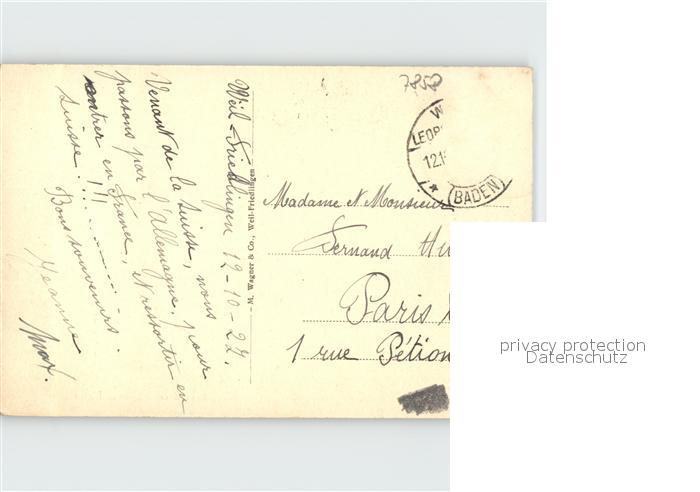 Weil Friedlingen 12-10-27.
Venant de la Suisse, nous
passons par l'Allemagne, pour
rentrer en France, et ressortir en
Suisse. !!!
Bons souvenirs.
Jeanne
Max.
M. Wagner & Co., Weil-Friedlingen
7850
W
LEOP
12.1
* (BADEN)
Madame et Monsieur
Fernand Hu
Paris
1 rue Pétion
privacy protection
Datenschutz